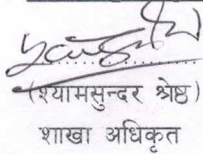 (श्यामसुन्दर श्रेष्ठ)
शाखा अधिकृत